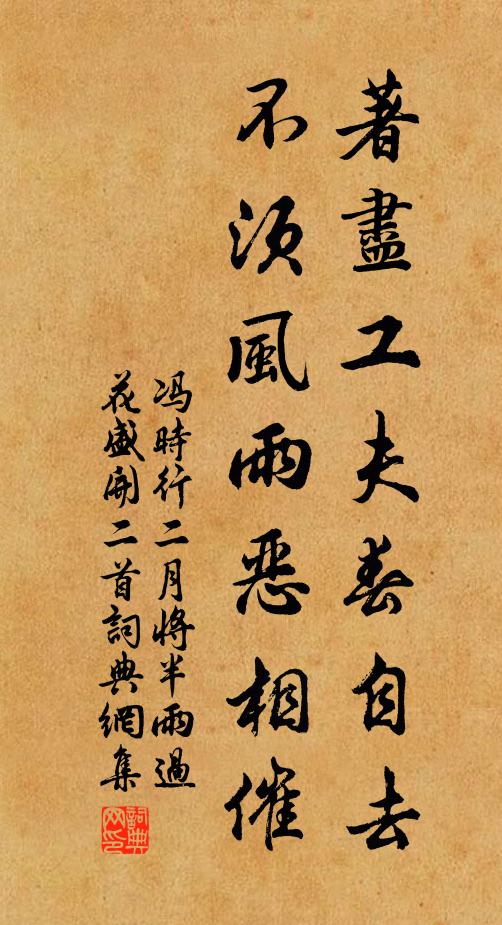 著盡工夫春自去
不須風雨惡相催
馮時行二月將半雨過
花盛開二首詞典網集
詞典
网印